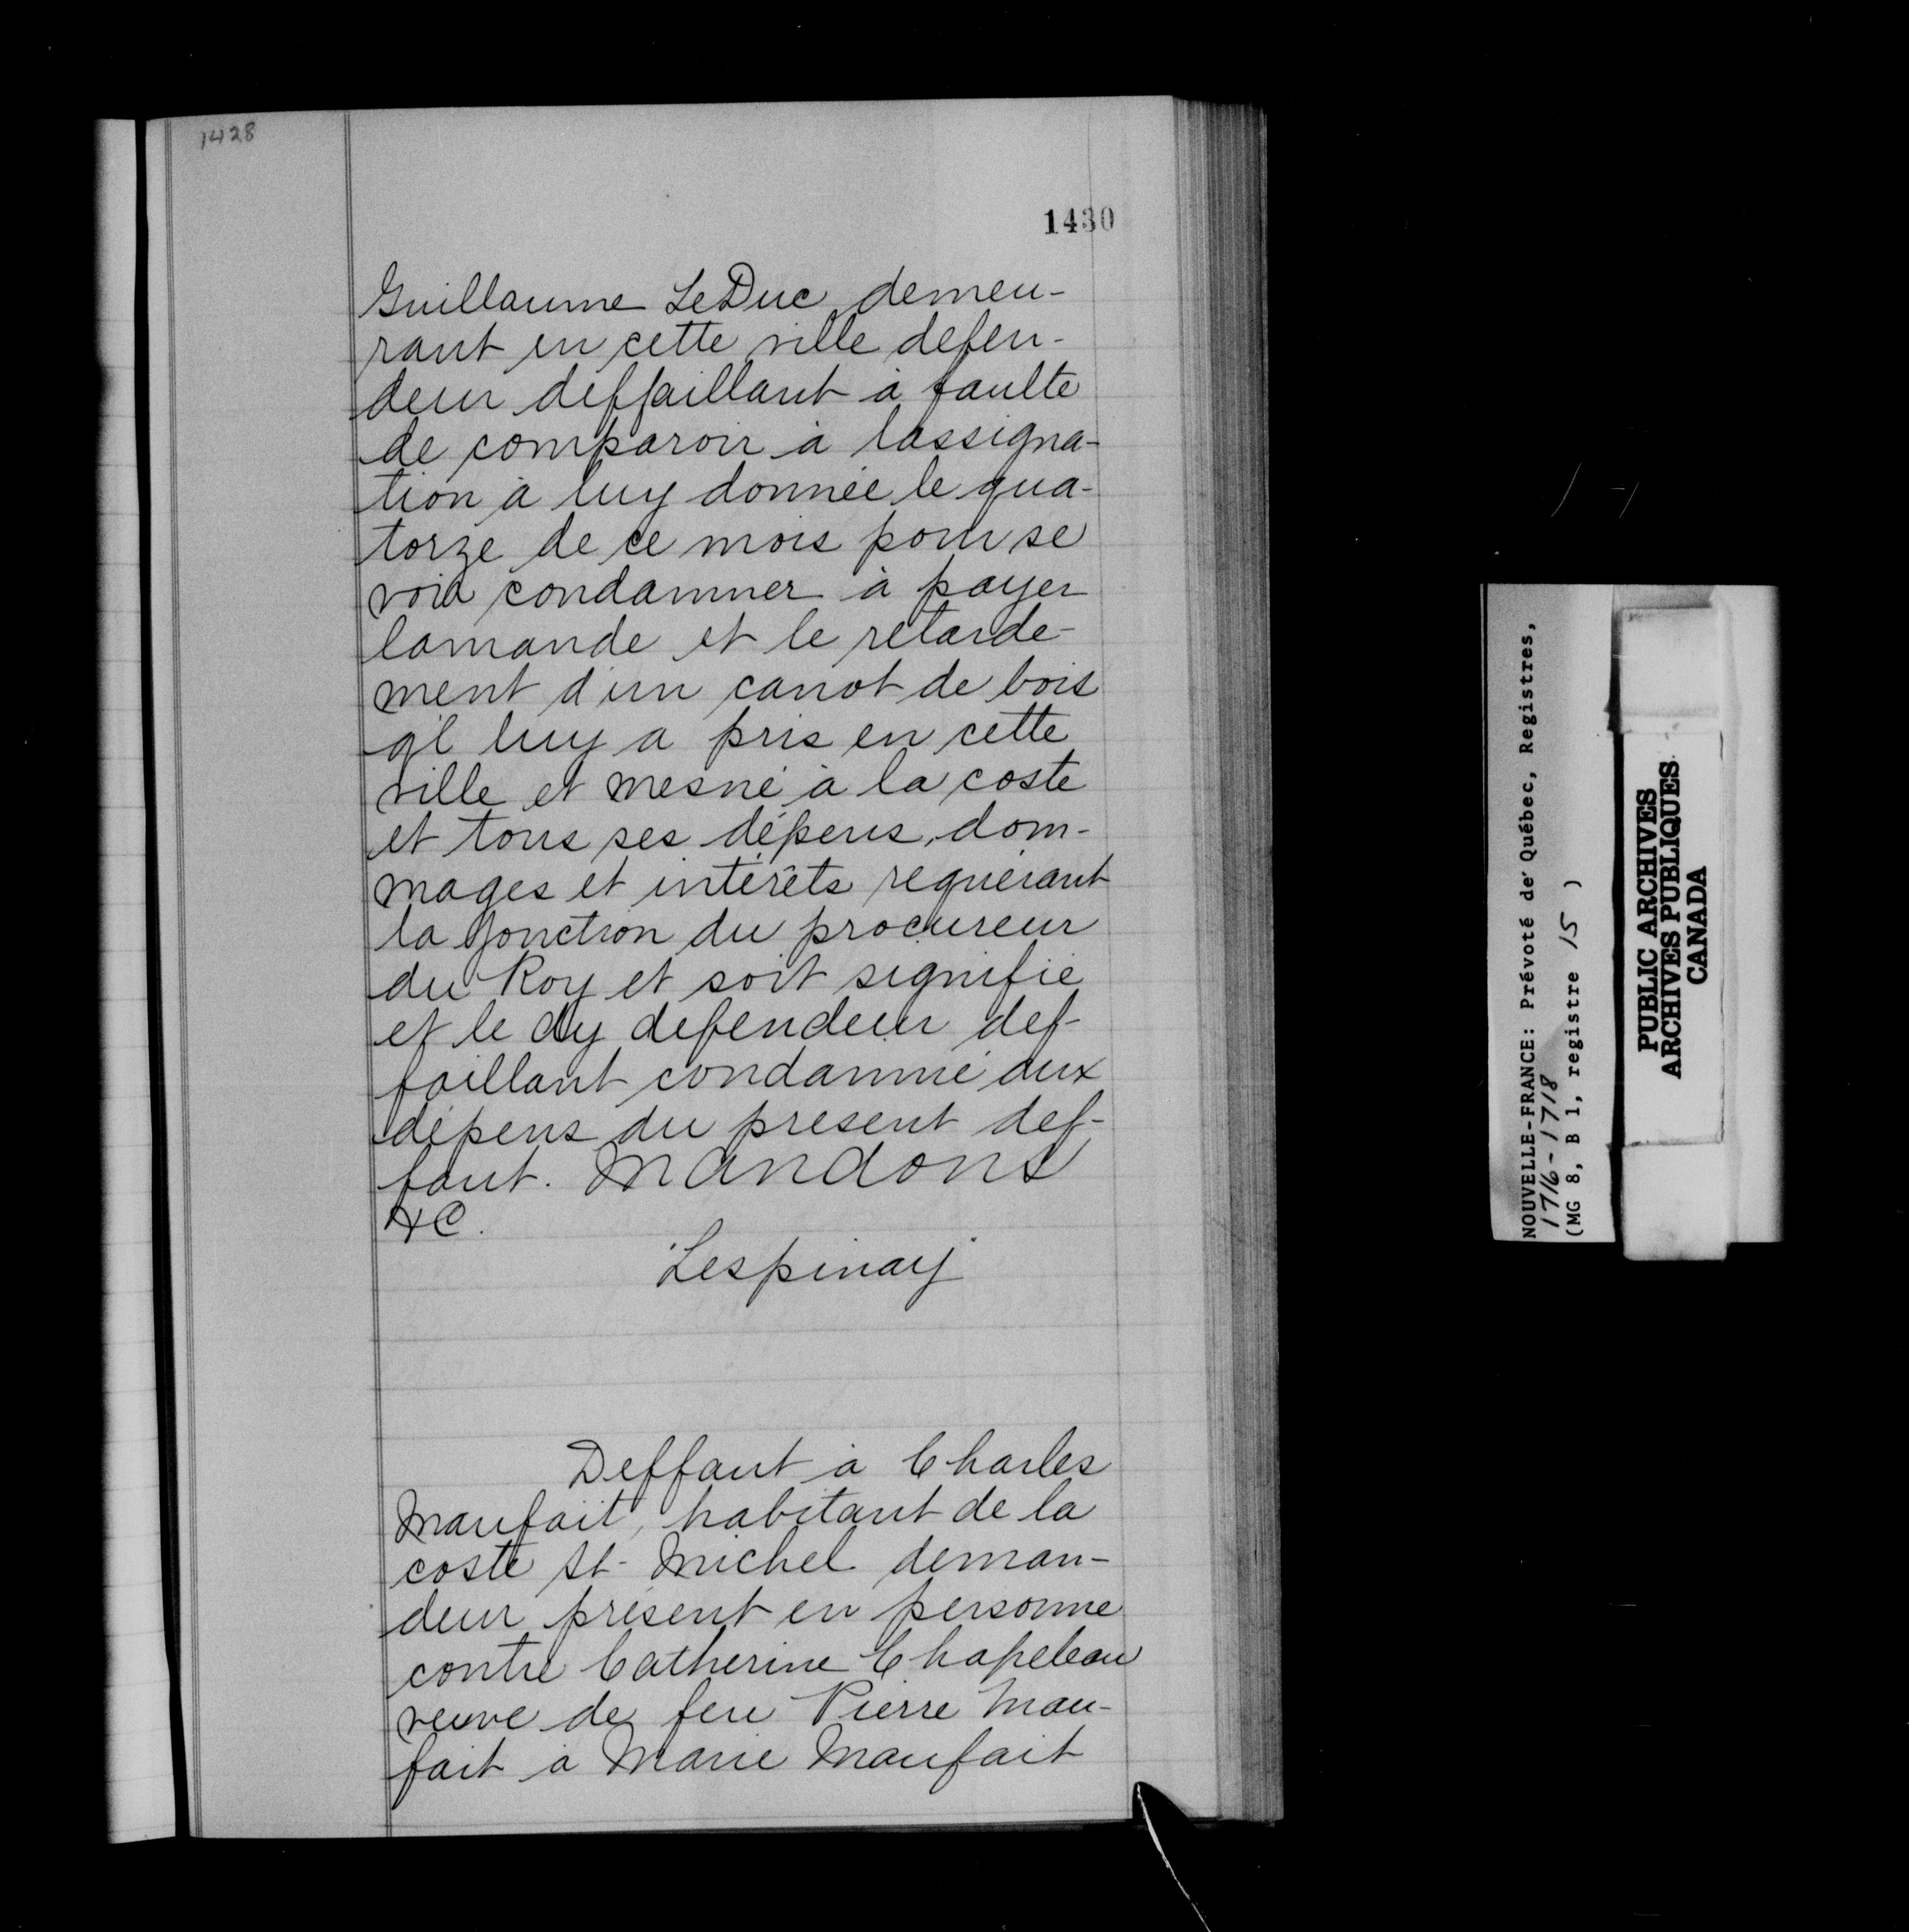 1428
1430
Guillaume LeDuc demeu-
rant en cette ville defen-
deur deffaillant à faulte
de comparoir à lassigna-
tion à luy donnée le qua-
torze de ce mois pour se
voir condamner à payer
lamande et le retarde-
ment d'un canot de bois
q'l luy a pris en cette
ville et mesné à la coste
et tous ses dépens, dom-
mages et intérêts requérant
la jonction du procureur
du Roy et soit signifié
et le dy defendeur def-
faillant condamné aux
dépens du présent def-
faut. Mandons
&C.
Lespinay
Deffaut à Charles
Maufait, habitant de la
coste St-Michel deman-
deur présent en personne
contre Catherine Chapeleau
veuve de feu Pierre Mau-
fait à Marie Maufait
NOUVELLE-FRANCE: Prévoté de Québec, Registres,
1716-1718
(MG 8, B 1, registre 15 )
PUBLIC ARCHIVES
ARCHIVES PUBLIQUES
CANADA